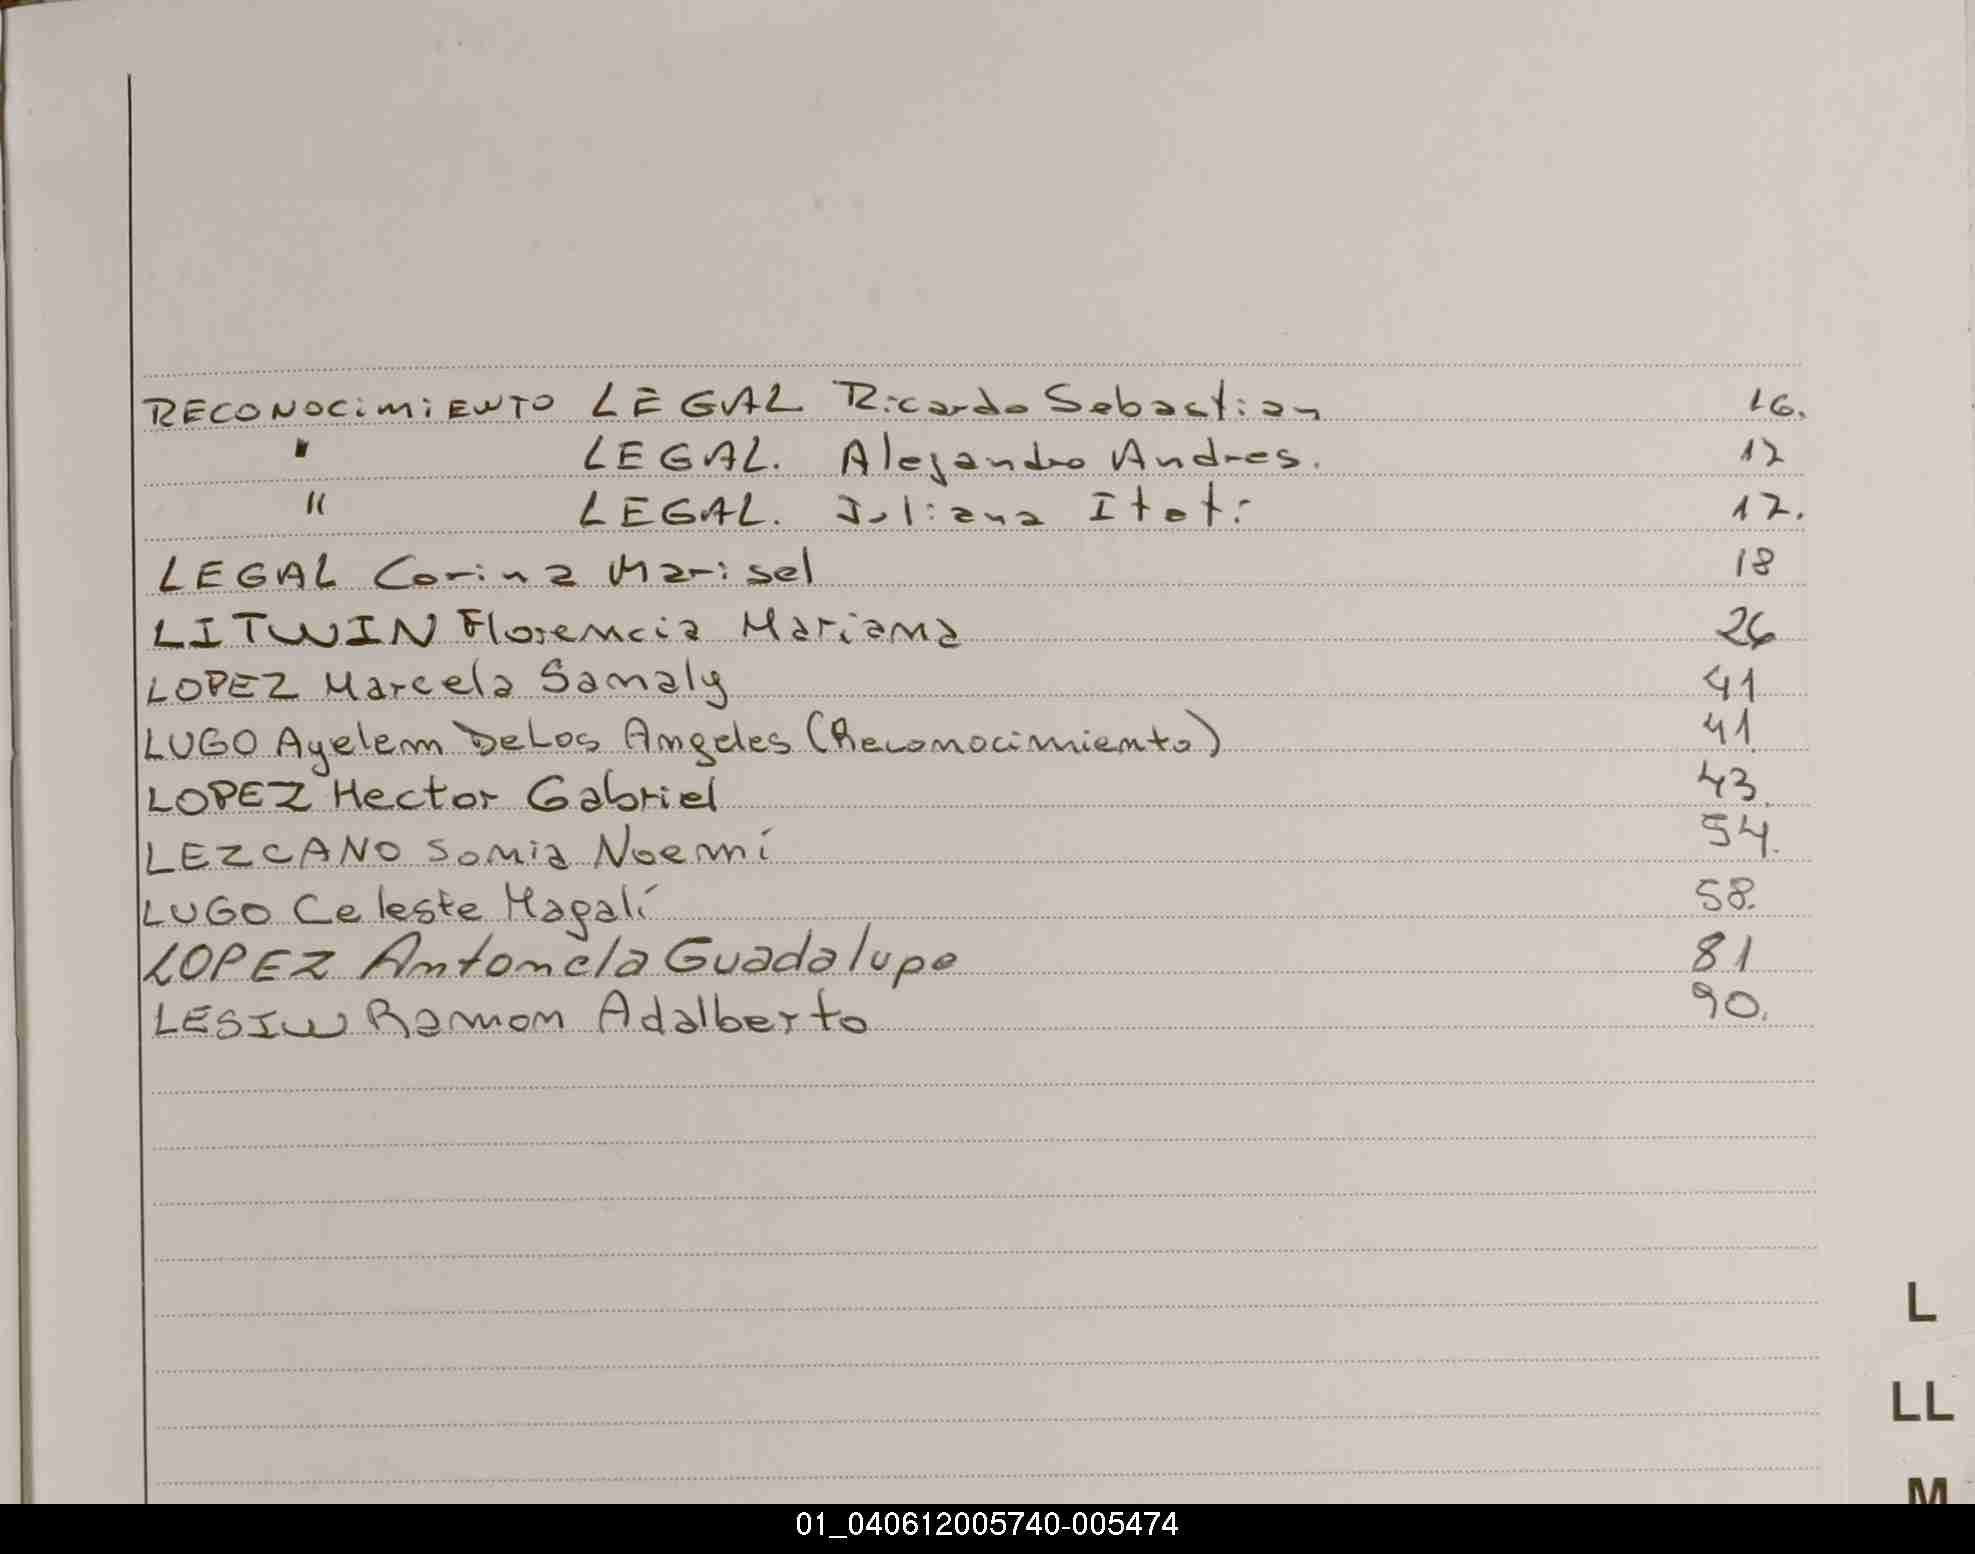 RECONOCIMIENTO LEGAL Ricardo Sebastian 16.
" LEGAL. Alejandro Andres. 17
" LEGAL. Juliana Itati 17.
LEGAL Corina Marisel 18
LITWIN Florencia Mariana 26
LOPEZ Marcela Samaly 41
LUGO Ayelem DeLos Angeles (Reconocimiento) 41
LOPEZ Hector Gabriel 43.
LEZCANO Sonia Noemí 54.
LUGO Celeste Magalí 58.
LOPEZ Antonela Guadalupe 81
LESIW Ramon Adalberto 90.
L
LL
M
01_040612005740-005474